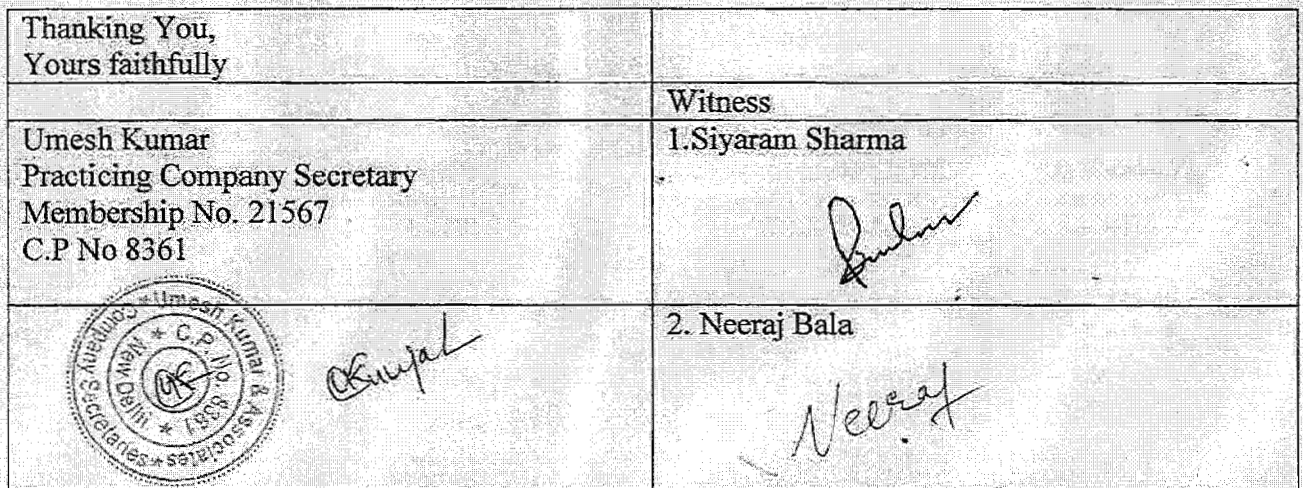 Thanking You,
Yours faithfully
Witness
Umesh Kumar
Practicing Company Secretary
Membership No. 21567
C.P No 8361
1.Siyaram Sharma
Umesh Kumar & Associates * Company Secretaries *
* C.P. No. 8361 * New Delhi
UK
2. Neeraj Bala
Neeraj